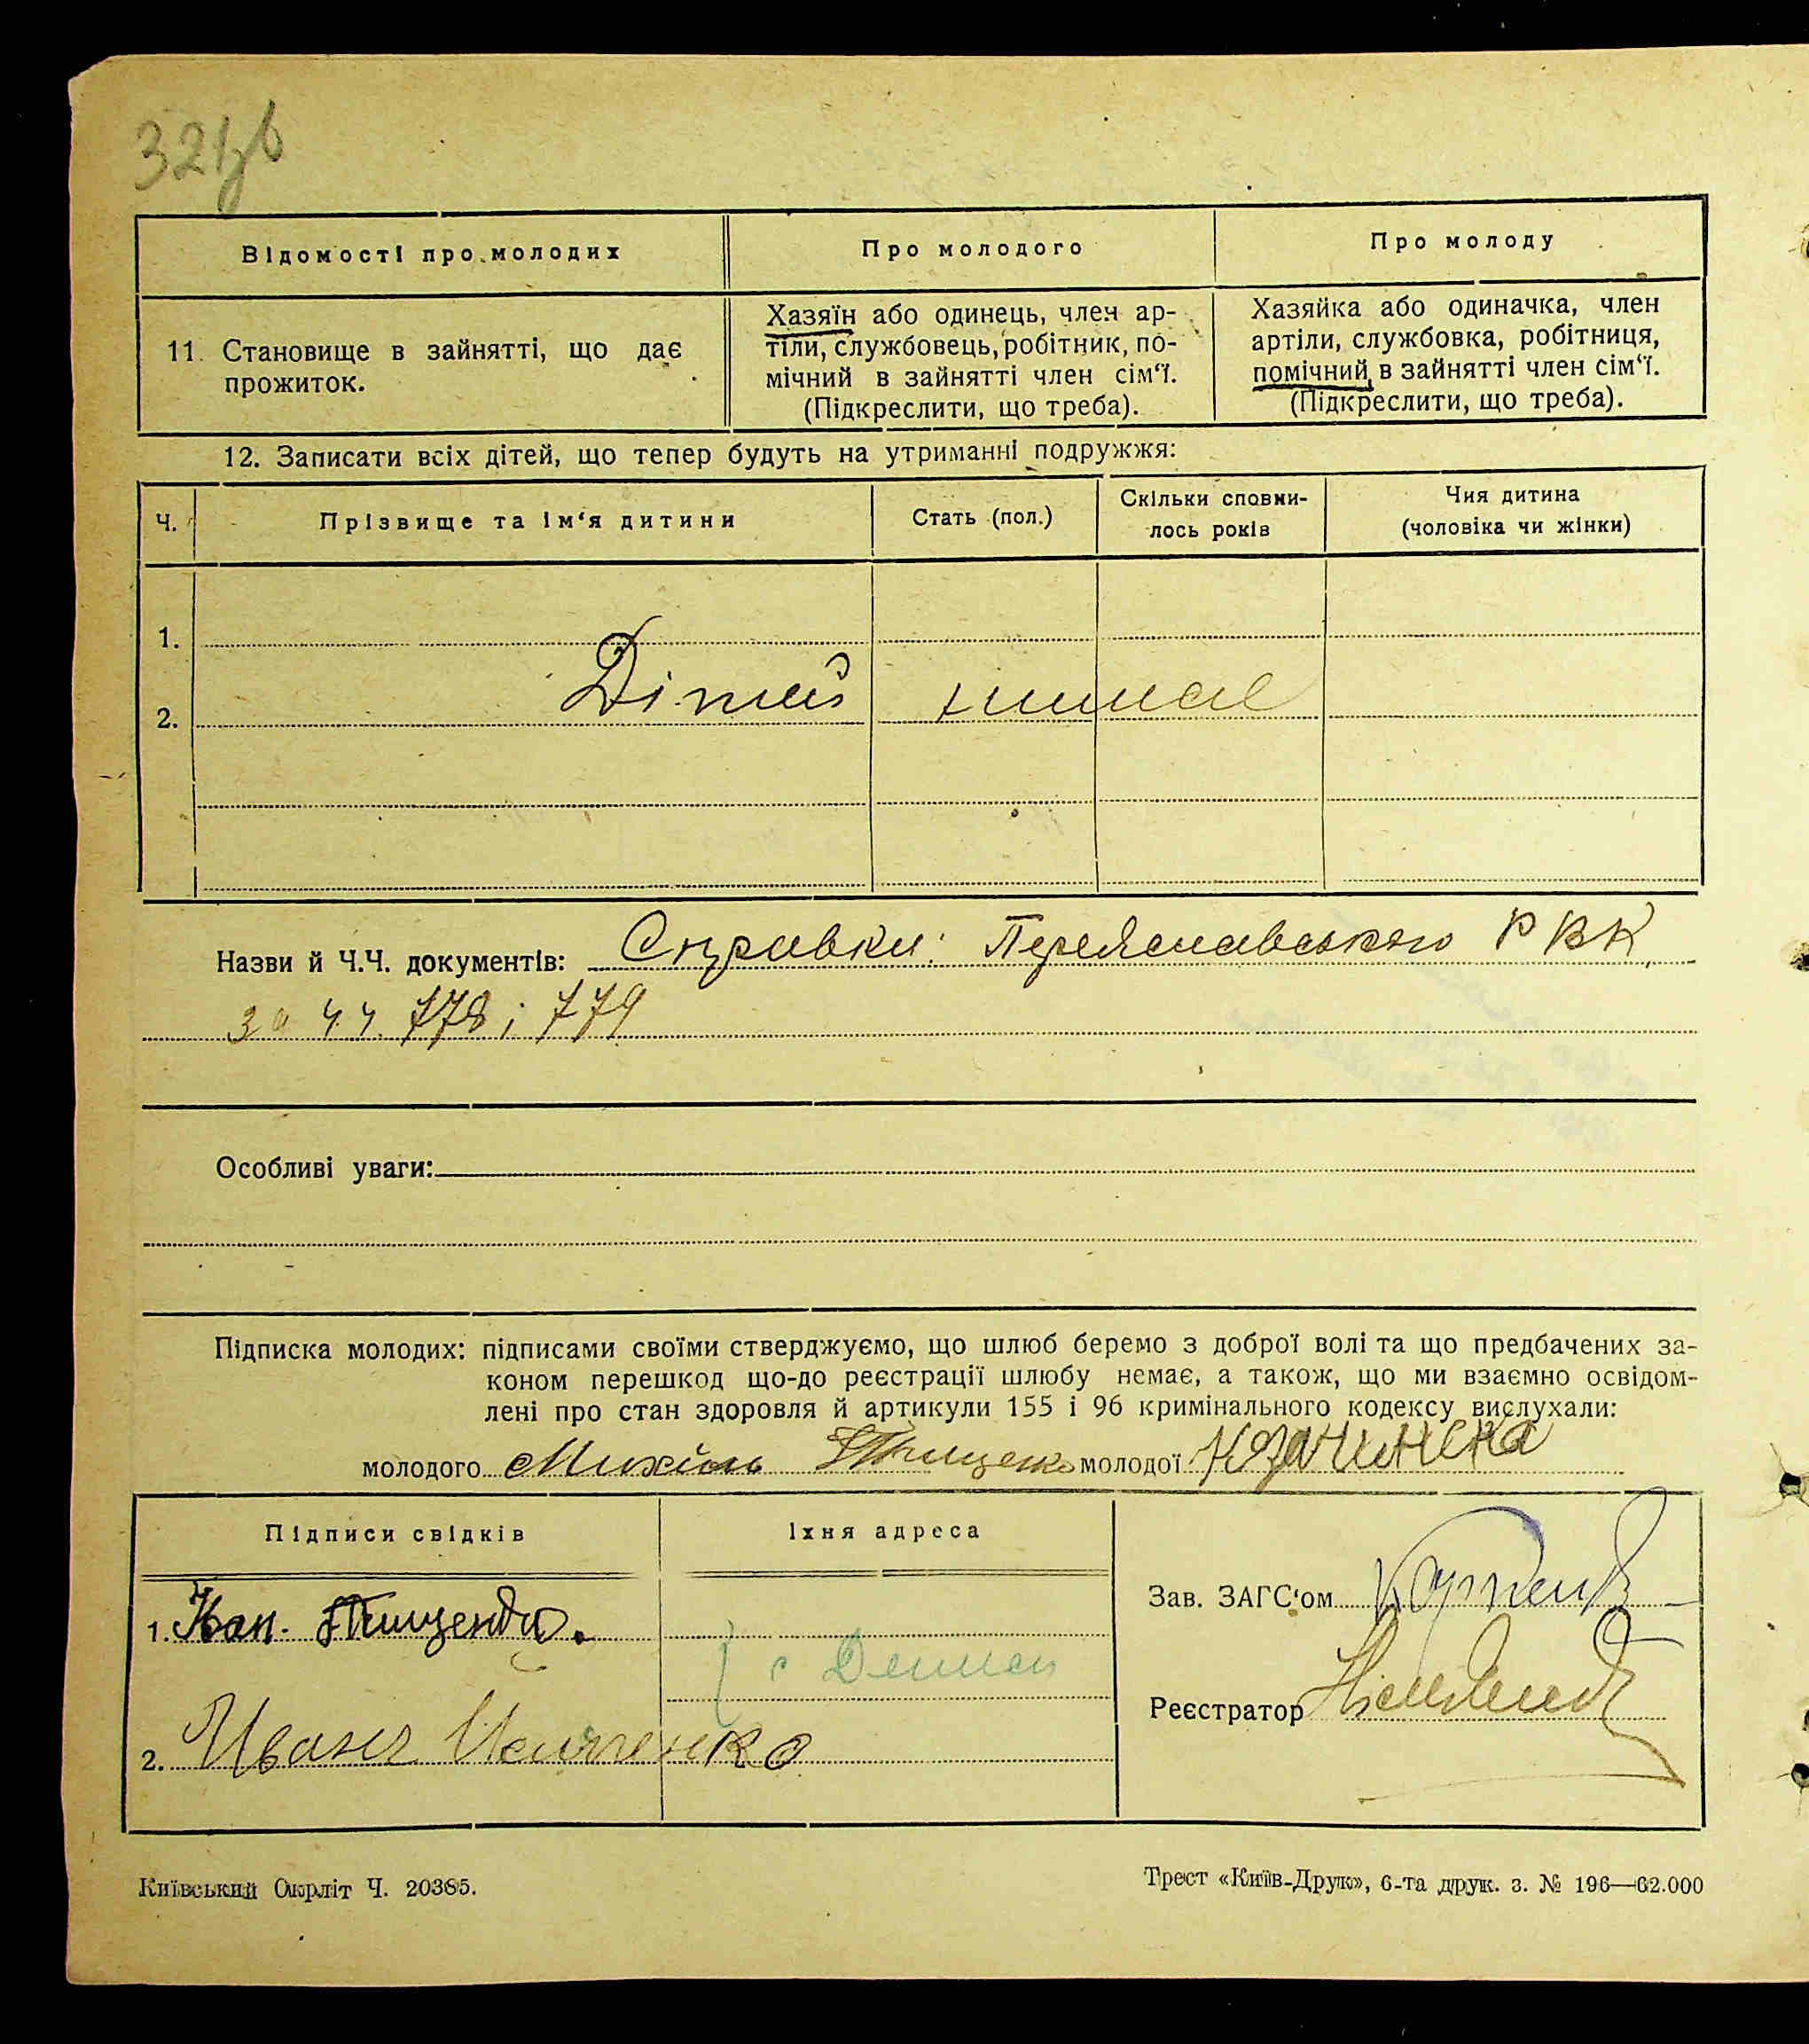 Відомості про молодих
Про молодого
Про молоду
11. Становище в зайнятті, що дає
прожиток.
Хазяїн або одинець, член ар-
тіли, службовець, робітник, по-
мічний в зайнятті член сім'ї.
(Підкреслити, що треба).
Хазяйка або одиначка, член
артіли, службовка, робітниця,
помічний в зайнятті член сім'ї.
(Підкреслити, що треба).
12. Записати всіх дітей, що тепер будуть на утриманні подружжя:
Ч.
Прізвище та ім'я дитини
Стать (пол.)
Скільки сповни-
лось років
Чия дитина
(чоловіка чи жінки)
1.
2. Дітей немає
Назви й Ч.Ч. документів: Справки: Переяславського РВК
за ч.ч. 778 і 779
Особливі уваги:
Підписка молодих: підписами своїми стверджуємо, що шлюб беремо з доброї волі та що предбачених за-
коном перешкод що-до реєстрації шлюбу немає, а також, що ми взаємно освідом-
лені про стан здоровля й артикули 155 і 96 кримінального кодексу вислухали:
молодого Михайло молодої
Підписи свідків
Їхня адреса
1.
с Демки
2. Иван
Зав. ЗАГС'ом
Реєстратор
Київський Окрліт Ч. 20385.
Трест «Київ-Друк», 6-та друк. з. № 196—62.000